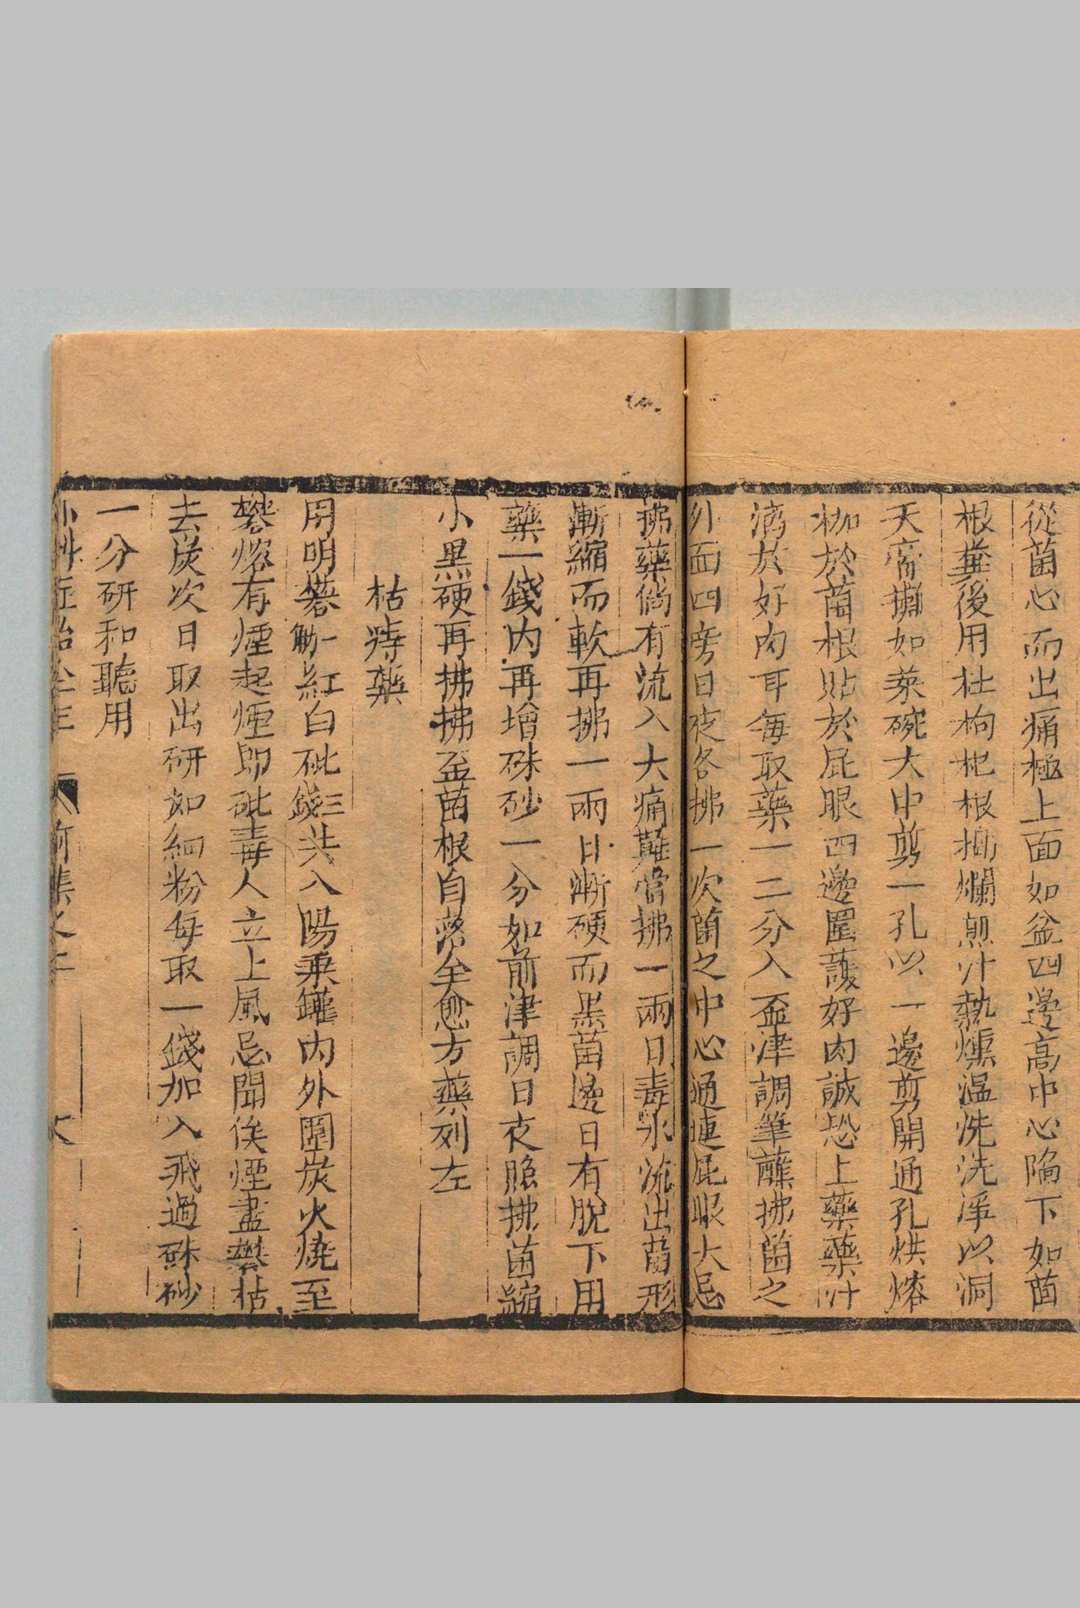 從菌心而出痛極上面如盆四邊高中心陷下如菌
根糞後用杜枸杞根搗爛煎汁熱燻溫洗洗淨以洞
天膏攤如茶碗大中剪一孔以一邊剪開通孔烘熔
枷於菌根貼於屁眼四邊圍護好肉誠恐上藥藥汁
滴於好肉耳每取藥一二分入盃津調筆蘸拂菌之
外面四旁日夜各拂一次菌之中心通連屁眼大忌
拂藥倘有流入大痛難當拂一兩日毒水流出菌形
漸縮而軟再拂一兩日漸硬而黑菌邊日有脫下用
藥一錢內再增硃砂一分如前津調日夜照拂菌縮
小黑硬再拂拂至菌根自落全愈方藥列左
枯痔藥
用明礬一觔紅白砒三錢共入陽乘罐內外圍炭火燒至
礬熔有煙起煙即砒毒人立上風忌聞俟煙盡礬枯
去炭次日取出研如細粉每取一錢加入飛過硃砂
一分研和聽用
外科症治全生 前集之上 六